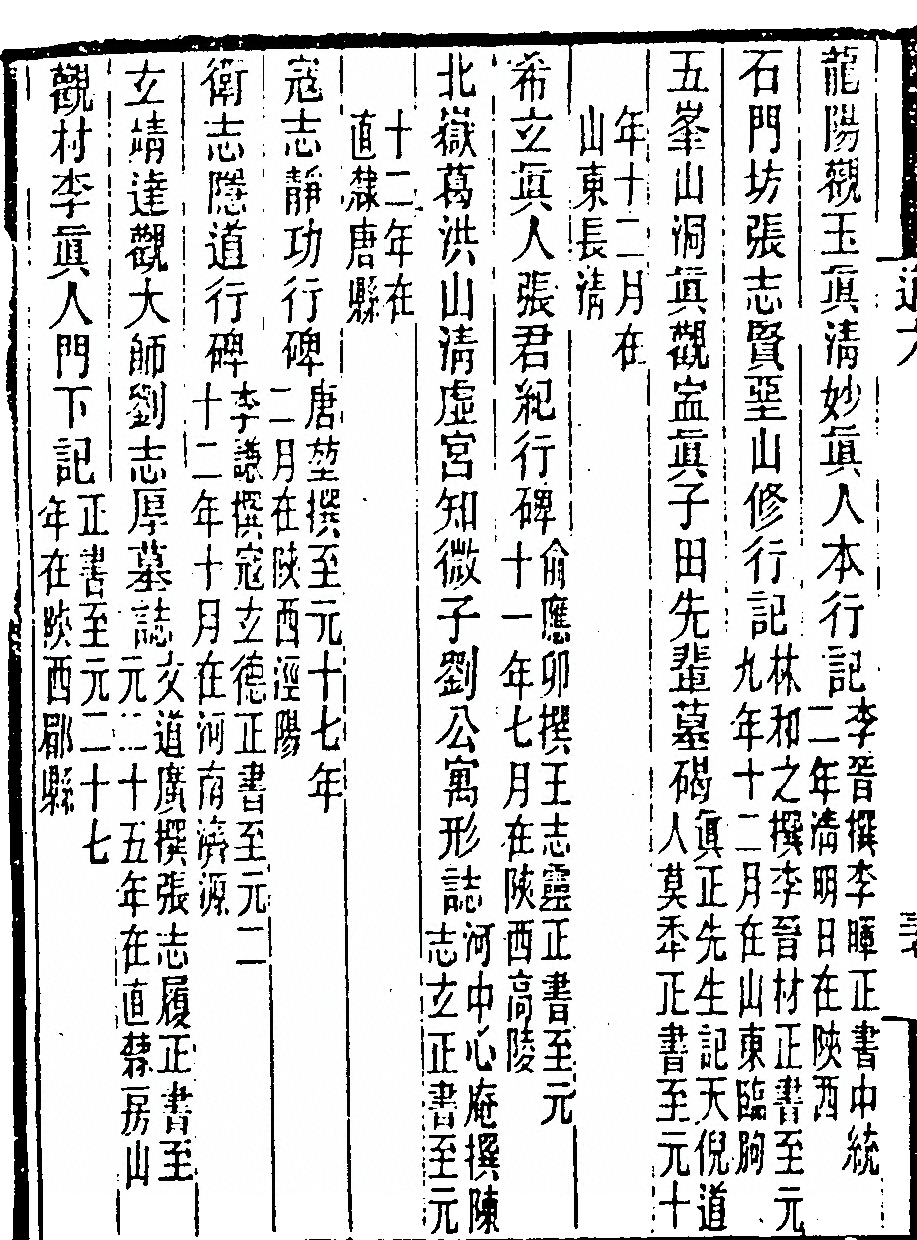 龍陽觀玉眞清妙眞人本行記李晉撰李暉正書中統
二年清明日在陝西
石門坊張志賢堊山修行記林和之撰李晉材正書至元
九年十二月在山東臨朐
五峯山洞眞觀盁眞子田先輩墓碣眞正先生記天倪道
人莫丕正書至元十
年十二月在
山東長清
希玄眞人張君紀行碑俞應卯撰王志靈正書至元
十一年七月在陝西高陵
北嶽葛洪山清虛宮知微子劉公寓形誌河中心庵撰陳
志玄正書至元
十二年在
直隸唐縣
寇志靜功行碑唐堃撰至元十七年
二月在陝西涇陽
衛志隱道行碑李謙撰寇玄德正書至元二
十二年十月在河南濟源
玄靖達觀大師劉志厚墓誌文道廣撰張志履正書至
元二十五年在直隸房山
觀村李眞人門下記正書至元二十七
年在陝西郿縣